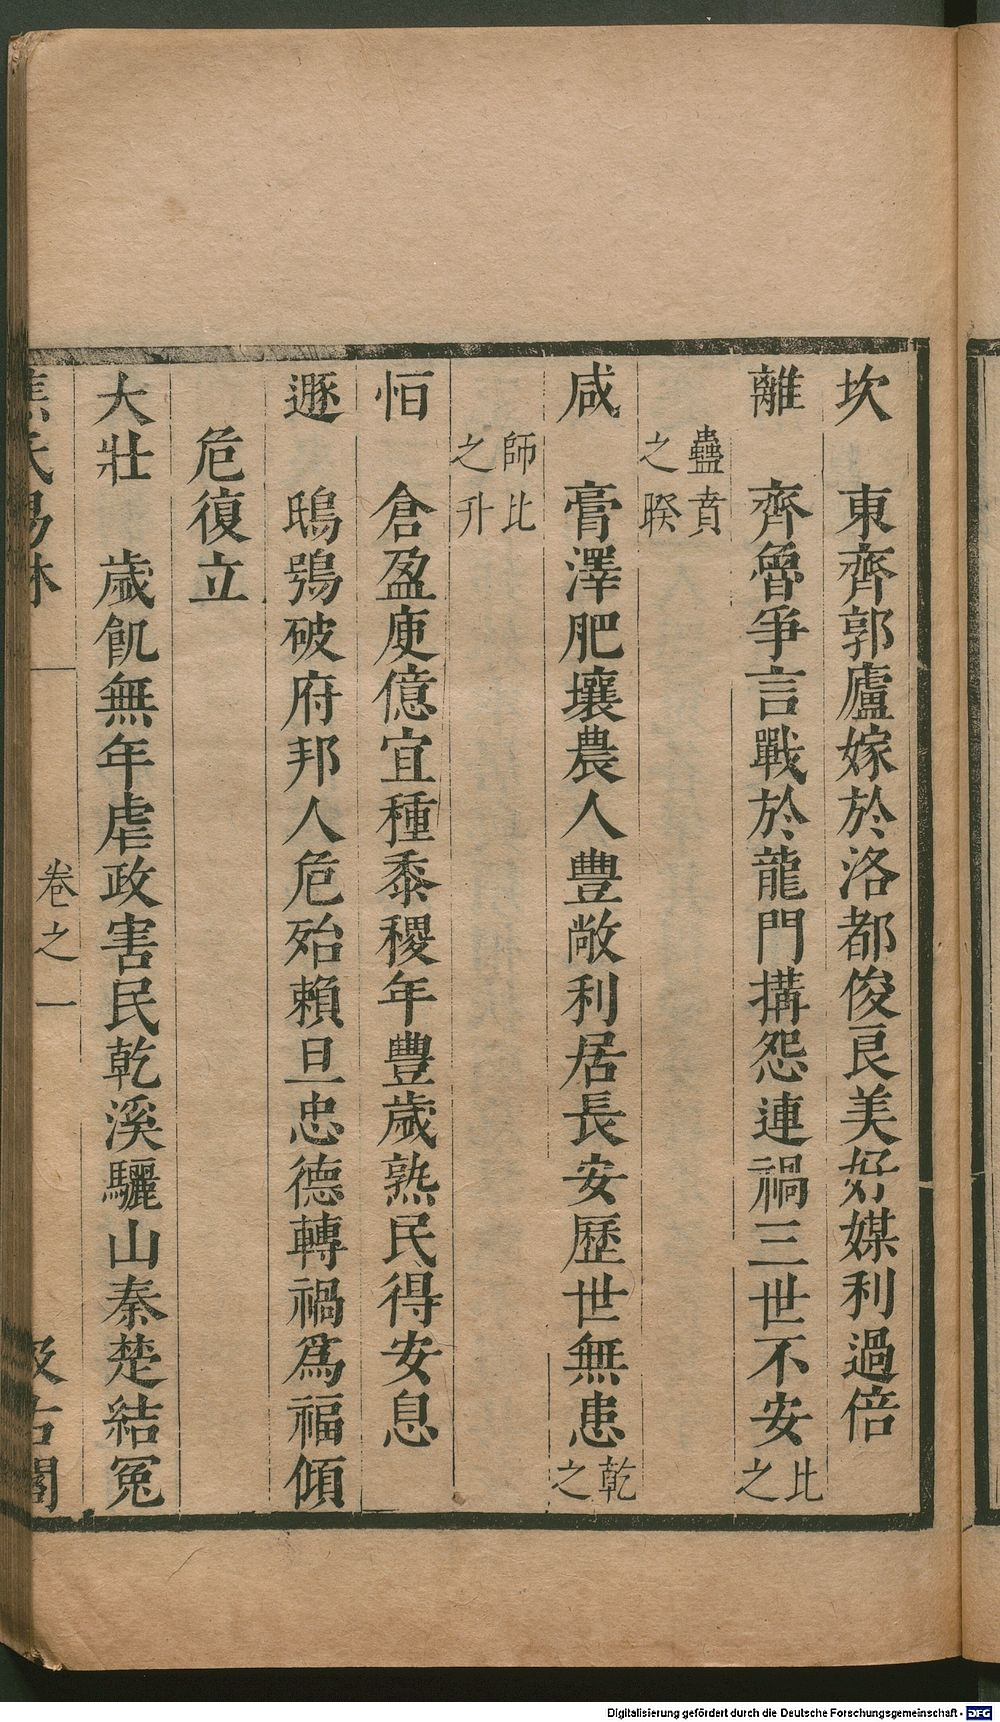 坎 東齊郭廬嫁於洛都俊良美好媒利過倍
離 齊魯爭言戰於龍門搆怨連禍三世不安比之
蠱賁之睽
咸 膏澤肥壤農人豐敞利居長安歷世無患乾之
師比之升
恒 倉盈庾億宜種黍稷年豐歲熟民得安息
遯 鴟鴞破府邦人危殆賴旦忠德轉禍爲福傾
危復立
大壯 歲飢無年虐政害民乾溪驪山秦楚結冤
焦氏易林 卷之一 汲古閣
Digitalisierung gefördert durch die Deutsche Forschungsgemeinschaft - DFG